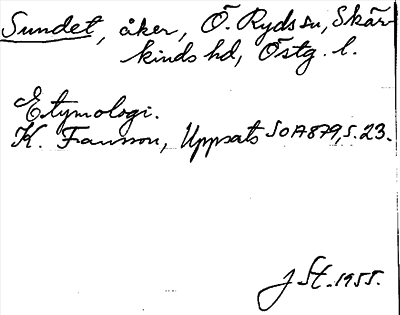 Sundet, åker, Ö. Ryds sn, Skär-
kinds hd, Östg. l.
Etymologi.
K. Fransson, Uppsats SOA879, s. 23.
J St. 1955.